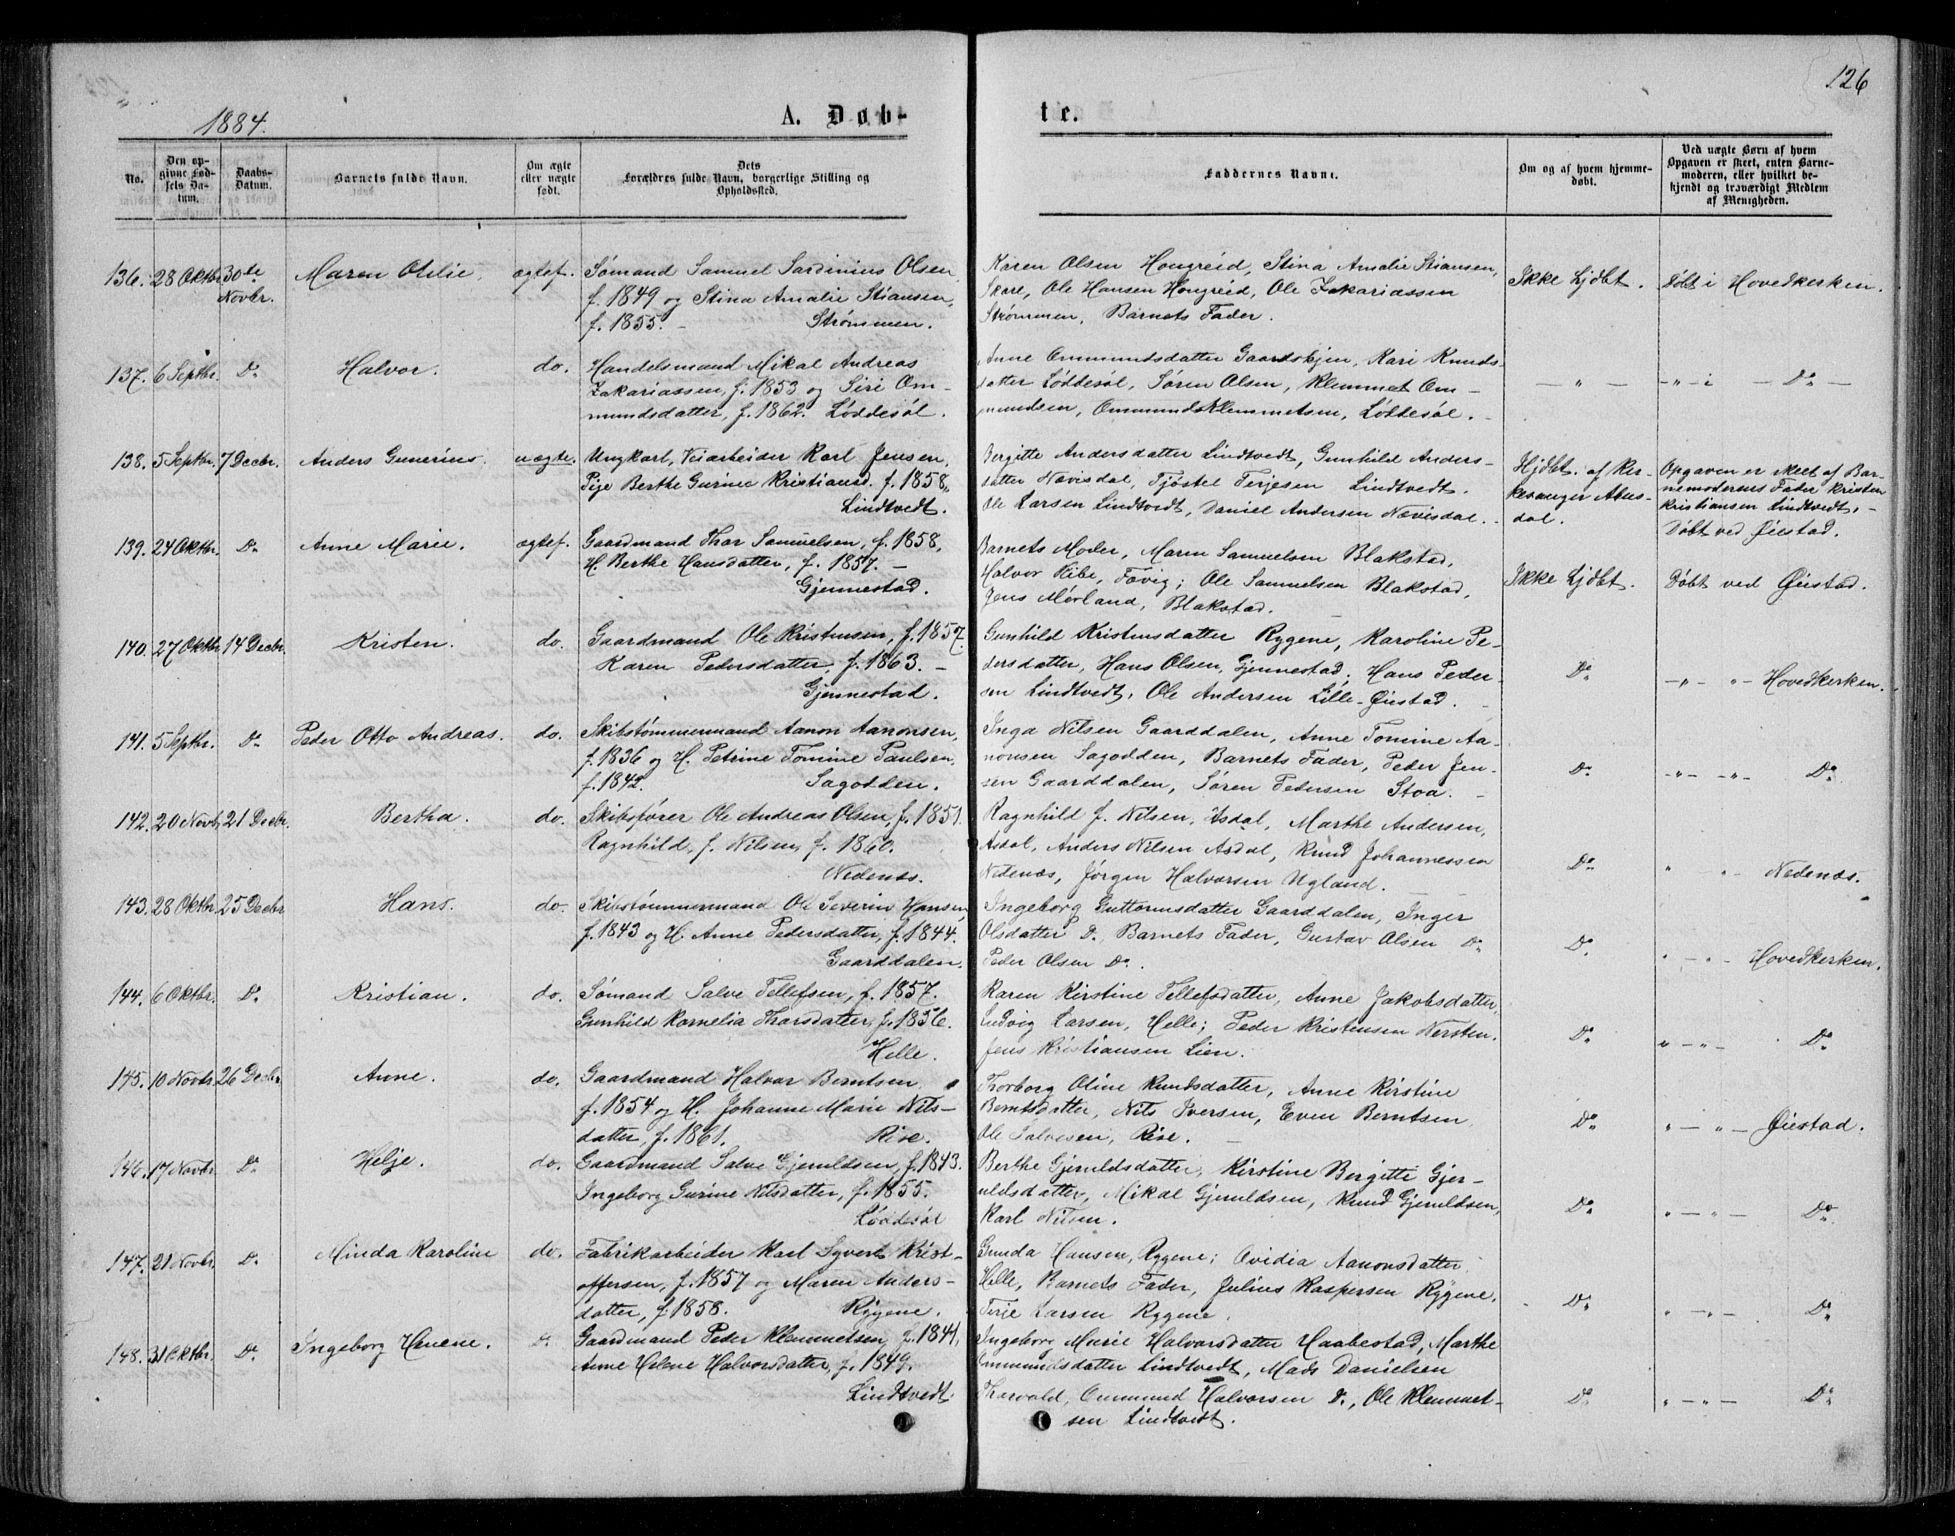 126
1884.
A. Døb-
te.
No.
Den op-
givne Fød-
sels Da-
tum.
Daabs-
Datum.
Barnets fulde Navn.
Om ægte
eller uægte
født.
Dets
Forældres fulde Navn, borgerlige Stilling og
Opholdssted.
Faddernes Navne.
Om og af hvem hjemme-
døbt.
Ved uægte Børn af hvem
Opgaven er skeet, enten Barne-
moderen, eller hvilket be-
kjendt og troværdigt Medlem
af Menigheden.
136. 28 Oktbr. 30te
Novbr.
Maren Otilie.
ægtef.
Sømand Samuel Sardinius Olsen
f. 1849 og Stina Amalie Stiansen,
f. 1855. - Strømmen.
Karen Olsen Hougreid, Stina Amalie Stiansen,
Skare, Ole Hansen Hougreid, Ole Zakariassen
Strømmen, Barnets Fader.
Ikke hjdbt.
Døbt i Hovedkerken.
137. 6 Septbr. Do
Halvor.
do.
Handelsmand Mikal Andreas
Zakariassen, f. 1853 og Siri Om-
mundsdatter, f. 1862. Løddesøl.
Anne Ommundsdatter Gaardskjen, Kari Knuds-
datter Løddesøl, Søren Olsen, Klemmet Om-
mundsen, Ommund Klemmetsen, Løddesøl. -
- " -
- " - i - Do -
138. 5 Septbr. 7 Decbr.
Anders Gunerius.
uægte.
Ungkarl, Veiarbeider Karl Jensen,
Pige Berthe Gurine Kristiansd. f. 1858,
Lindtvedt.
Bergitte Andersdatter Lindtvedt, Gunhild Anders-
datter Nævisdal, Tjøstel Terjesen Lindtvedt.
Ole Larsen Lindtvedt, Daniel Andersen Nævisdal.
Hjdbt. af Kir-
kesanger Abus-
dal.
Opgaven er skeet af Bar-
nemoderens Fader Kristen
Kristiansen Lindtvedt. -
Døbt ved Øiestad.
139. 24 Oktbr. Do
Anne Marie.
ægtef.
Gaardmand Thor Samuelsen, f. 1858,
H. Berthe Hansdatter, f. 1857. -
Gjennestad.
Barnets Moder, Maren Samuelsen Blakstad,
Halvor Ribe, Fævig; Ole Samuelsen Blakstad,
Jens Mørland, Blakstad.
Ikke hjdbt.
Døbt ved Øiestad.
140. 27 Oktbr. 14 Decbr.
Kristen.
do.
Gaardmand Ole Kristensen, f. 1857.
Karen Pedersdatter, f. 1863. -
Gjennestad.
Gunhild Kristensdatter Rygene, Karoline Pe-
dersdatter, Hans Olsen, Gjennestad; Hans Peder-
sen Lindtvedt, Ole Andersen Lille-Øiestad. -
Do
- " - " - Hovedkerken.
141. 5 Septbr. Do
Peder Otto Andreas.
do.
Skibstømmermand Aanon Aanonsen,
f. 1836 og H. Petrine Tomine Paulsen,
f. 1842. Sagodden.
Inga Nilsen Gaarddalen, Anne Tomine Aa-
nonsen Sagodden, Barnets Fader, Peder Jen-
sen Gaarddalen, Søren Pedersen Stoa. -
Do
- " - - " - Do
142. 20 Novb. 21 Decbr.
Bertha.
do.
Skibsfører Ole Andreas Olsen, f. 1851.
Ragnhild, f. Nilsen, f. 1860.
Nedenæs.
Ragnhild f. Nilsen, Asdal, Marthe Andersen,
Asdal, Anders Nilsen Asdal, Knud Johannessen
Nedenæs, Jørgen Halvorsen Ugland. -
Do
" - " - Nedenæs.
143. 28 Oktbr. 25 Decbr
Hans.
do.
Skibstømmermand Ole Severin Hansen
f. 1843 og H. Anne Pedersdatter, f. 1844.
Gaarddalen.
Ingeborg Guttormsdatter Gaarddalen, Inger
Olsdatter Do, Barnets Fader, Gustav Olsen Do
Peder Olsen Do.
Do
" - " - Hovedkerken.
144. 6 Oktbr. Do
Kristian.
do.
Sømand Salve Tellefsen, f. 1857.
Gunhild Kornelia Thorsdatter, f. 1856.
Helle.
Karen Kirstine Tellefsdatter, Anne Jakobsdatter,
Ludvig Larsen, Helle; Peder Kristensen Nersten,
Jens Kristiansen Lien.
Do
" - " - Do
145. 10 Novbr. 26 Decbr
Anne.
do.
Gaardmand Halvor Berntsen,
f. 1854 og H. Johanne Marie Nils-
datter, f. 1861. Rise.
Thorborg Oline Knudsdatter, Anne Kirstine
Berntsdatter, Nils Iversen, Even Berntsen,
Ole Salvesen, Rise. -
Do
" - " - Øiestad.
146. 17 Novbr. Do
Helje.
do.
Gaardmand Salve Gjeruldsen, f. 1843.
Ingeborg Gurine Nilsdatter, f. 1855.
Løddesøl
Berthe Gjeruldsdatter, Kirstine Bergitte Gjer-
uldsdatter, Mikal Gjeruldsen, Knud Gjeruldsen,
Karl Nilsen.
Do
" - " - Do
147. 21 Novbr. Do
Minda Karoline
do.
Fabrikarbeider Karl Syvert Krist-
offersen, f. 1857 og Maren Anders-
datter, f. 1858. Rygene.
Gunda Hansen, Rygene; Ovidia Aanonsdatter
Helle, Barnets Fader, Julius Kaspersen Rygene,
Terje Larsen Rygene.
Do
" - " - Do
148. 31 Oktbr. Do
Ingeborg Helene.
Do
Gaardmand Peder Klemmetsen, f. 1841,
Anne Helene Halvorsdatter, f. 1849.
Lindtvedt.
Ingeborg Marie Halvorsdatter Haabestad, Marthe
Ommundsdatter Lindtvedt, Mads Danielsen
Thorvald, Ommund Halvorsen Do, Ole Klemmet-
sen Lindtvedt.
Do
" - " - Do